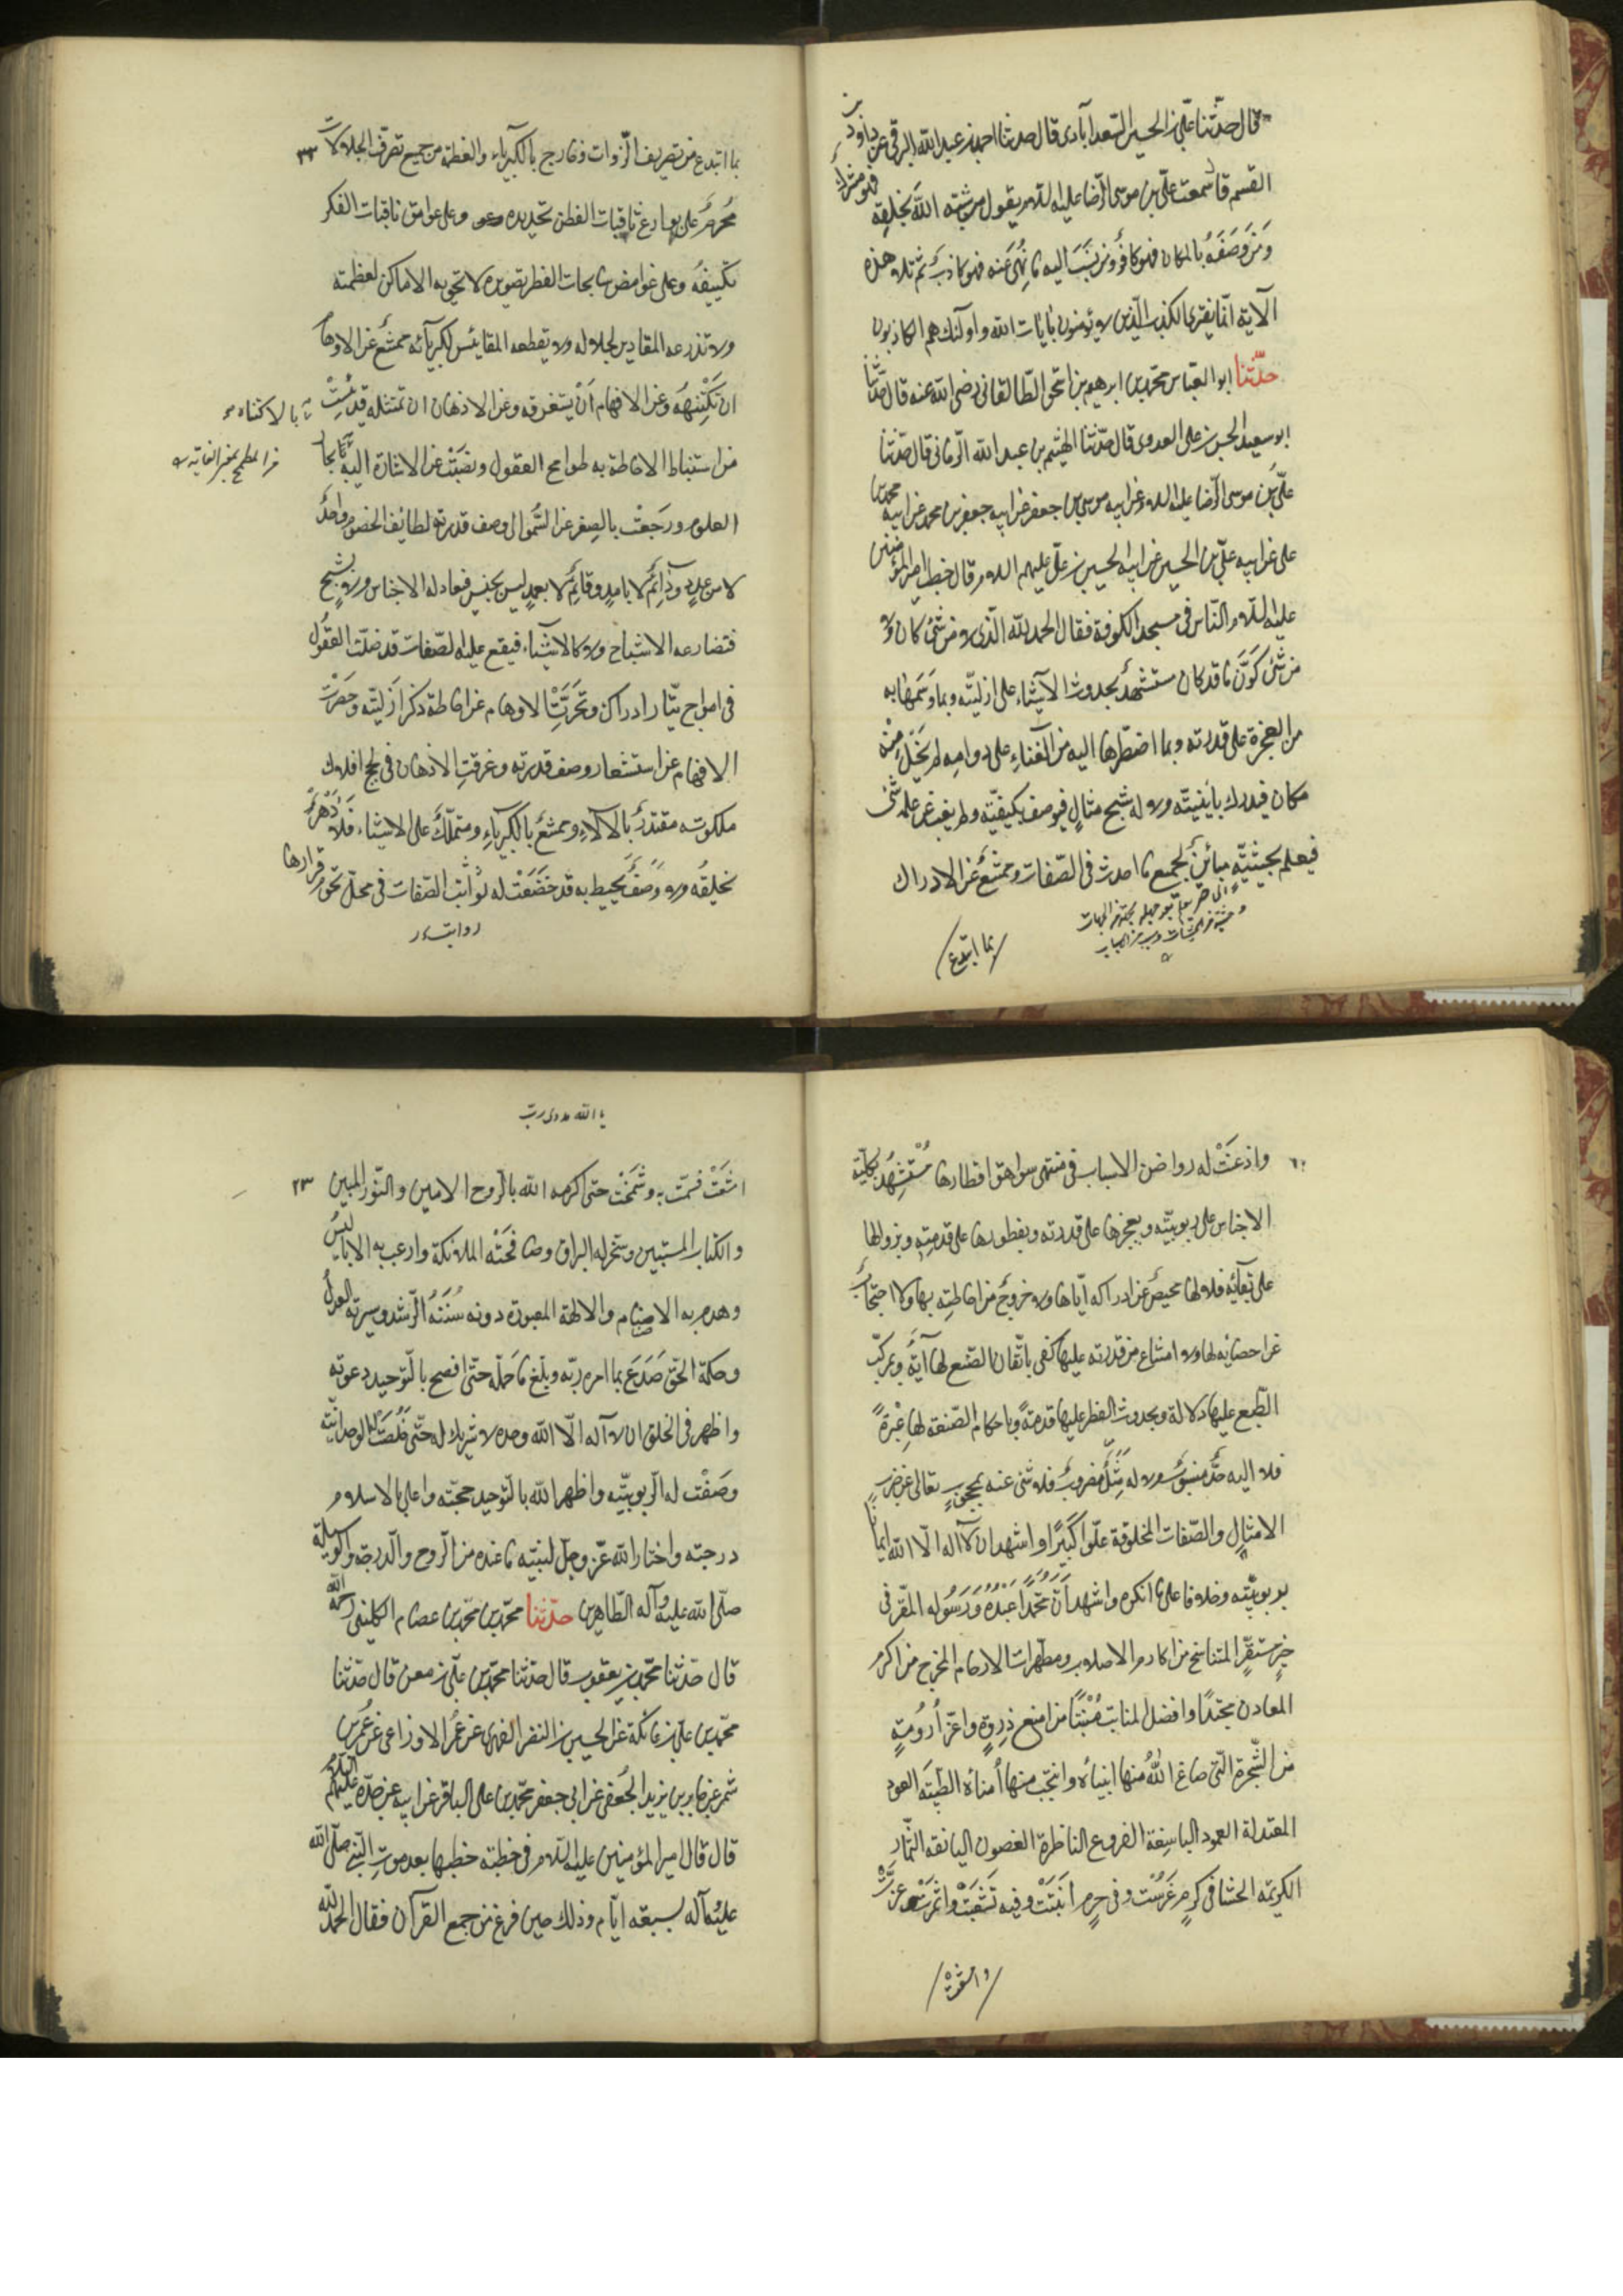 قال حدّثنا علّي بن الحسين السّعدابادى قال حدثنا احمد بن عبد الله البرقى عن داود بن
القسم قال سمعت علّى بن موسى الرّضا عليه السّلام يقول من شبّه اللّه بخلقه فهو مشرك
وَمَن وَصَفَهُ بالمكان فهو كافرٌ ومن نَسَبَ اليه ما نُهِىَ عنه فهو كاذبٌ ثم تلا هذه
الآية انّما يفترى الكذب الّذين لا يؤمنون بايات الله واولئك هم الكاذبون
حدّثنا ابو العباس محمّد بن ابرهيم بن اسحق الطّالقانى رضى الله عنه قال حدّثنا
ابو سعيد الحسن بن على العدوى قال حدّثنا الهيثم بن عبد الله الرّمانى قال حدّثنا
علّى بن موسى الرّضا عليه السلام عن ابيه موسى بن جعفر عن ابيه جعفر بن محمد عن ابيه محمد بن
على عن ابيه علّى بن الحسين عن ابيه الحسين بن علّى عليهم السلام قال خطب امير المؤمنين
عليه السّلام النّاس فى مسجد الكوفة فقال الحمد للّه الّذى لا من شئ كان ولا
من شئ كَوَّنَ ما قد كان مستشهدٌ بحدوث الاشياء على ازليّته وبما وَسَمَها به
من العجزة على قدرته وبما اضطّرها اليه من الفناءِ على دوامِه لم يَخْلُ مِنْهُ
مكان فيدرك باَينيّته ولا له شبح مثالٍ فيوصف بكيفيّته ولم يغب عن علمه شئ
فيعلم بحيثيّتهٍ مبائنٌ لجميع ما احدث فى الصّفات وممتنعٌ عن الادراك
بما ابتدع
بما ابتدع من تصريف الذّوات وخارج بالكبرياء والعظمة من جميع تصرّف الحالات ٣٣
مُحرمٌ على بوارع ثاقبات الفطن تحديده وعلى عوامق ثاقبات الفكر
تكييفهُ وعلى غوامض سابحات الفطر تصويره لا تحويه الاماكن لعظمته
ولا تذرعه المقادير لجلاله ولا يقطعه المقائيس لكبريائه ممتنعٌ عن الاوهام
ان تَكْتَنِههُ وعن الافهام اَنْ يستغرقه وعن الاذهان ان تمتثله قد يئسَتْ
من استنباط الاحاطة به طوامح العقول ونضَبَتْ عن الاشارة اليه بحار
بالاكتناه
العلوم ورجعَتْ بالصِغر عن السُّمو الى وصف قدرته لطائف الخصوم واحدٌ
لا من عددٍ ودَائِمٌ لا بامدٍ وقائِمٌ لا بعمدٍ ليس بجنسٍ فتعادله الاجناس ولا بشبحٍ
فتضارعه الاشباح ولا كالاشياء فيقع عليه الصّفات قد ضلّت العقُول
فى امواج تيّار ادراكه وتحَيّرَتْ الاوهام عن احاطة ذكر ازَليّته وحَصِرَتْ
الافهام عن استشعار وصف قدرته وغرقت الاذهان فى لجج افلاك
ملكوته مقتدرٌ بالآلاءِ وممتنعٌ بالكبرياءِ ومتملّكٌ على الاشياء فَلا دَهْرٌ
يخلِقُه ولا وَصْفٌ يحيط به قد خضَعَتْ له ثوابت الصّفات فى محلّ تخوم قرارها
واذعَنَتْ له رواضن الاسباب فى منتهى سواهق اقطارها مُسْتَشْهِدٌ بكلّية
الاجناس على ربوبيّته وبعجزها على قدرته وبفطورها على قدمتِه وبزوالها
على بقآئه فلا لها محيصٌ عن ادراكه ايّاها ولا خروجٌ من احاطتِه بها ولا احتجابٌ
عن احصائِه لها ولا امتناع من قدرته عليها كفى باتّقان الصّنع لها آيةً وبمركّب
الطّبع عليها دلالة وبحدوث الفطر عليها قدمةً وباحكام الصّنعة لها عِبْرةً
فلا اليه حدٌّ منسوبٌ ولا له مَثَلٌ مضروبٌ فلا شئ عنه بمحجوبٍ تعالى عن ضربِ
الامثال والصّفات المخلوقة علوّا كَبيرًا واشهد ان لا اله الّا الله ايمانًا
بربوبيّته وخلافا على من انكره واشهد انّ محمّدًا عَبْدُهُ وَرَسُوله المقّر فى
خيرِ مستقرٍّ المتناسخ من اكارم الاصلاب ومطهّرات الارحام المخرج من اكرم
المعادن محتدًا وافضل المنابت مُنْبَتًا من امنع ذِروةٍ واعزّ اُرُومَتٍه
من الشّجرة الّتى صاغ اللهُ منها انبيائه وانتجب منها اُمناؤه الطيّبَة العود
المعتدلة العمود الباسِقة الفروع الناظرة الغصون اليانعة الثّمار
الكريمة الحشا فى كرمٍ غُرِسَتْ وفى حرمٍ اُنبَتَتْ وفيه تَشَعّبَتْ واثمَرَتْ وعزّتْ
وامتنعَتْ
يا الله
امتنعَتْ فسَمَتْ به وشَمَخَتْ حتى اكرمه الله بالرّوح الامين والنّور المبين ٢٣
والكتاب المستبين وسخّر له البراق وصافحَتْه الملائكة وارعب به الاباليس
وهدم به الاصنام والالهة المعبودة دونه سُنَتهُ الرّشد وسيرته العدلُ
وحكمه الحّق صَدَعَ بما امره ربّه وبلّغ ما حمّله حتّى افصح بالتّوحيد دعوته
واظهر فى الخلق ان لا آله الّا الله وحده لا شريك له حتّى خلصَتْ له الوحدانيّة
وصَفَتْ له الرّبوبيّة واظهر الله بالتّوحيد حجّته واعلى بالاسلام
درجته واختار اللّه عّز وجلّ لنبيّه ما عنده من الرّوح والدّرجة والوسيلة
صلّى الله عليه وآله الطّاهرين حدّثنا محمّد بن محمّد بن عصام الكلينى رحمه الله
قال حدّثنا محمّد بن يعقوب قال حدّثنا محمّد بن علّى بن معن قال حدّثنا
محمّد بن علّى بن عاتكة عن الحسين بن النضر الفهرى عن عمر الاوزاعى عن عمر بن
شمر عن جابر بن يزيد الجُعفى عن ابى جعفر محمّد بن على الباقر عن ابيه عن جدّه عليهم السلام
قال قال امير المؤمنين عليه السّلام فى خطبة خطبها بعد موت النّبى صلّى الله
عليه وآله بسبعة ايّام وذلك حين فرغ من جمع القرآن فقال الحمد للّه